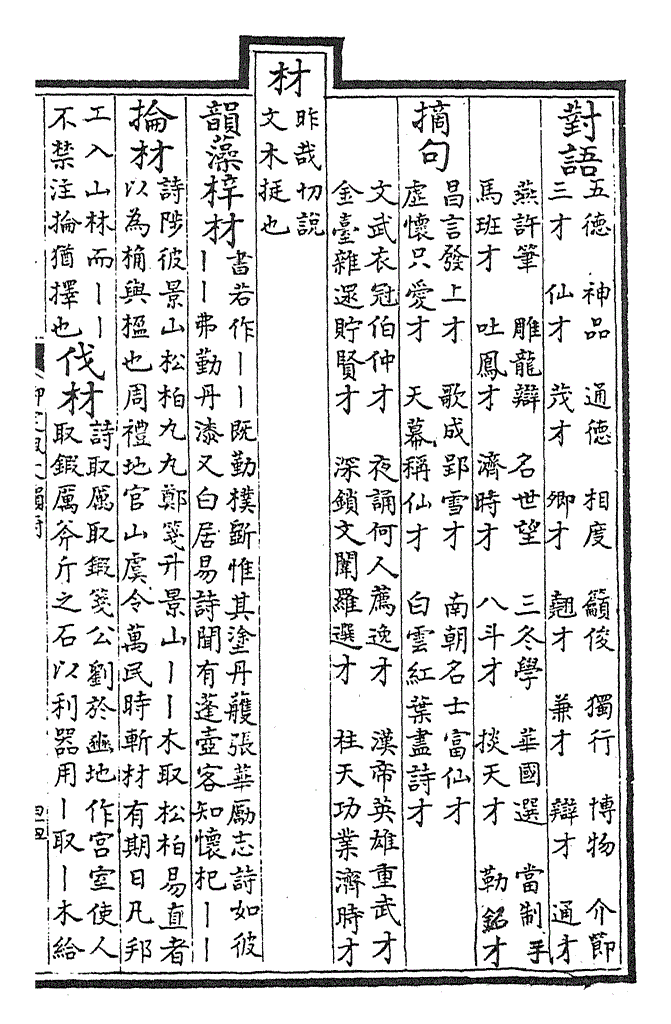 對語
五德 神品 通德 相度 籲俊 獨行 博物 介節
三才 仙才 茂才 卿才 翹才 兼才 辯才 通才
燕許筆 雕龍辯 名世望 三冬學 華國選 當制手
馬班才 吐鳳才 濟時才 八斗才 掞天才 勒銘才
摘句
昌言發上才 歌成郢雪才 南朝名士富仙才
虛懷只愛才 天幕稱仙才 白雲紅葉盡詩才
文武衣冠伯仲才 夜誦何人薦逸才 漢帝英雄重武才
金臺雜遝貯賢才 深鎖文闈羅選才 柱天功業濟時才
材
昨哉切說
文木挺也
韻藻
梓材
書若作丨丨既勤樸斲惟其塗丹雘張華勵志詩如彼
丨丨弗勤丹漆又白居易詩聞有蓬壺客知懷杞丨丨
掄材
詩陟彼景山松柏九九鄭箋升景山丨丨木取松柏易直者
以為桷與楹也周禮地官山虞令萬民時斬材有期日凡邦
工入山林而丨丨
不禁注掄猶擇也
伐材
詩取厲取鍜箋公劉於豳地作宮室使人
取鍜厲斧斤之石以利器用丨取丨木給